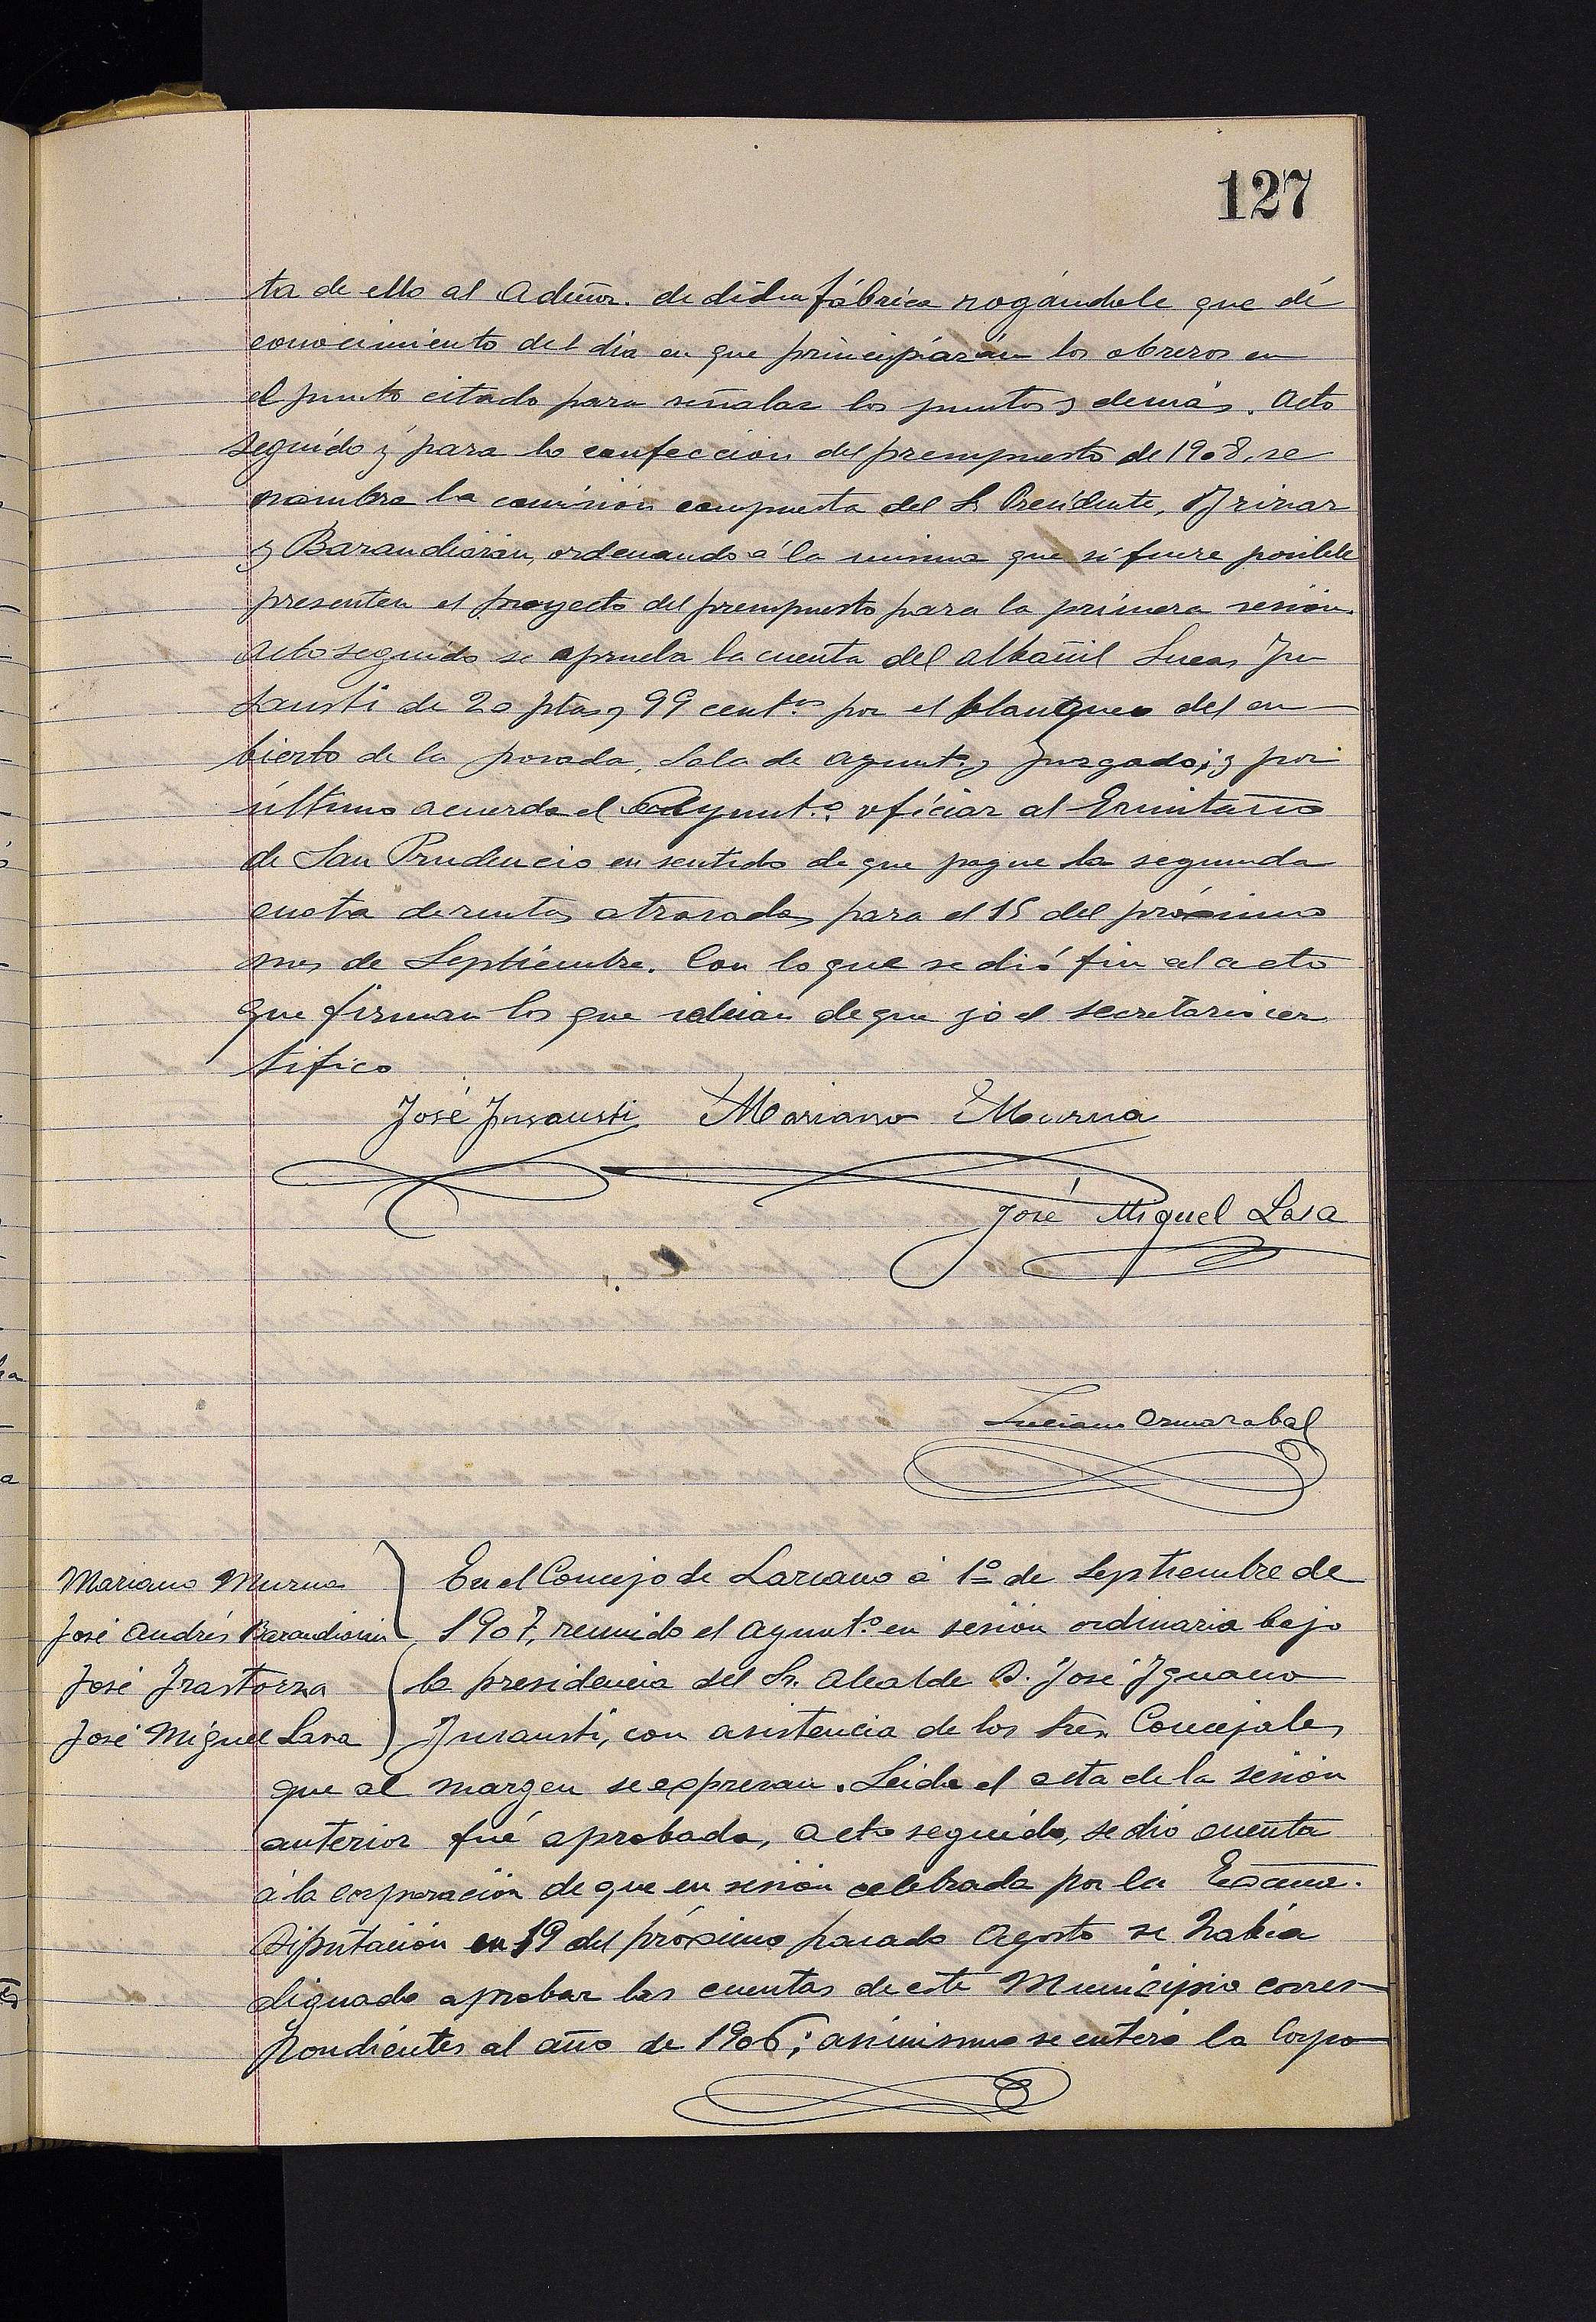 127
ta de ello al Admor. de dicha fábrica rogándole que dé
conocimiento del dia en que principiarán los obreros en
el punto citado para señalar los puntos y demás. Acto
seguido y para la confección del presupuesto de 1908, se
nombra la comisión compuesta del Sr Presidente, Irizar
y Barandiarán, ordenando á la misma que si fuere posible
presenten el proyecto del presupuesto para la primera sesión.
Acto seguido se aprueba la cuenta del albañil Lucas Yn
sausti de 20 ptas y 99 cent.os por el blanqueo del cu
bierto de la posada, Sala de Ayunt.o y Juzgado; y por
último acuerda el Ayunt.o oficiar al Ermitaño
de San Prudencio en sentido de que pague la segunda
cuota de rentas atrasadas para el 15 del próximo
mes de Septiembre. Con lo que se dió fin al acto
que firman los que sabian de que yo el secretario cer
tifico
José Insausti Mariano Murua
José Miguel Lasa
Luciano Ormazabal
Mariano Murua
José Andrés Barandiarán
José Irastorza
José Miguel Lasa
En el Concejo de Lazcano á 1º de Septiembre de
1907, reunido el Ayunt.o en sesión ordinaria bajo
la presidencia del Sr. Alcalde D. José Ygnacio
Insausti, con asistencia de los Sres. Concejales
que al margen se expresan. Leida el acta de la sesión
anterior fué aprobada, acto seguido, se dió cuenta
á la corporación de que en sesión celebrada por la Excma.
Diputación en 19 del próximo pasado Agosto se había
dignado aprobar las cuentas de este Municipio corres
pondientes al año de 1906; asimismo se enteró la Corpo